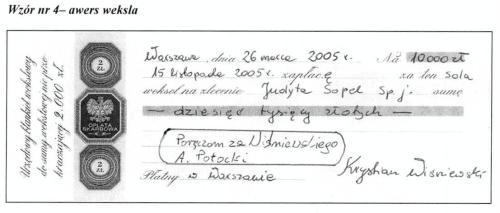 Wzór nr 4– awers weksla
Urzędowy blankiet wekslowy
do sumy wekslowej nie prze-
kraczającej 2.000 zł.
2
ZŁ
OPŁATA
SKARBOWA
2
ZŁ
Warszawa, dnia 26 marca 2005 r. Na 10 000 zł
15 listopada 2005 r. zapłacę za ten sola
weksel na zlecenie Judyta Sopel Sp. j. sumę
— dziesięć tysięcy złotych —
Poręczam za Wiśniewskiego
A. Potocki
Płatny w Warszawie
Krystian Wiśniewski